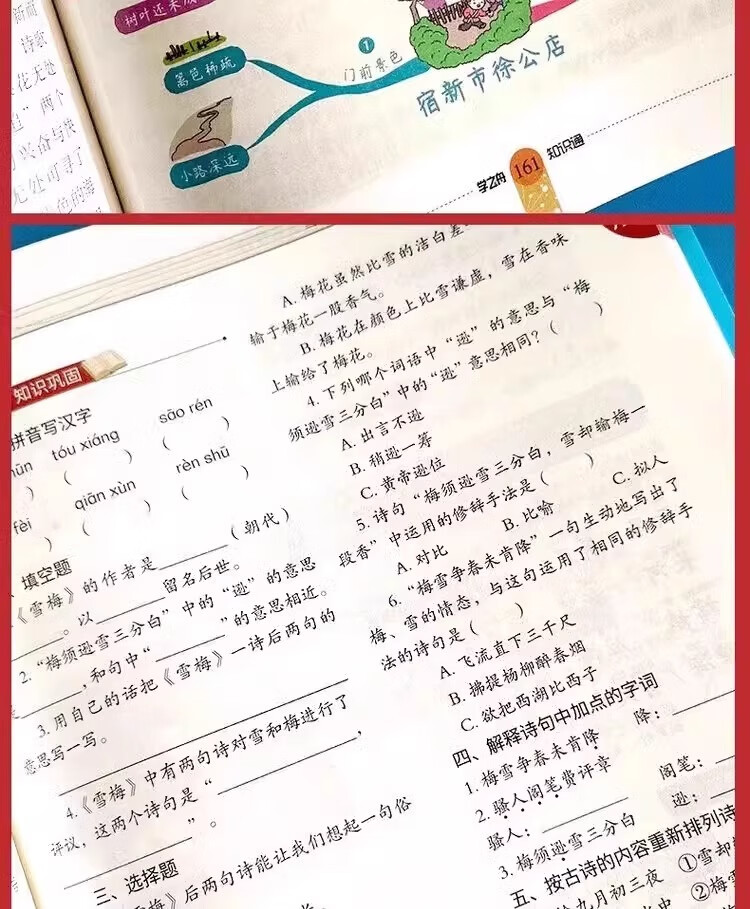 树叶还未
篱笆稀疏
小路深远
1
门前景色
宿新市徐公店
诗歌
花无处
两个
兴奋与快
无处可寻了
学之舟 161 知识通
知识巩固
拼音写汉字
tóu xiáng sāo rén
( ) ( )
qiān xùn rèn shū
fèi ( ) ( )
填空题
《雪梅》的作者是______(朝代)
______。以______留名后世。
2. “梅须逊雪三分白”中的“逊”的意思
______,和句中“______”的意思相近。
3. 用自己的话把《雪梅》一诗后两句的
意思写一写。
4.《雪梅》中有两句诗对雪和梅进行了
评议，这两个诗句是“______，
______”。
三、选择题
雪梅》后两句诗能让我们想起一句俗
A. 梅花虽然比雪的洁白差
输于梅花一股香气。
B. 梅花在颜色上比雪谦虚，雪在香味
上输给了梅花。
4. 下列哪个词语中“逊”的意思与“梅
须逊雪三分白”中的“逊”意思相同？( )
A. 出言不逊
B. 稍逊一筹
C. 黄帝逊位
5. 诗句“梅须逊雪三分白，雪却输梅一
段香”中运用的修辞手法是( )
A. 对比 B. 比喻 C. 拟人
6. “梅雪争春未肯降”一句生动地写出了
梅、雪的情态，与这句运用了相同的修辞手
法的诗句是( )
A. 飞流直下三千尺
B. 拂提杨柳醉春烟
C. 欲把西湖比西子
四、解释诗句中加点的字词
1. 梅雪争春未肯降 降：______
2. 骚人阁笔费评章
骚人：______ 阁笔：______
3. 梅须逊雪三分白 逊：______
五、按古诗的内容重新排列诗
九月初三夜 ①雪却
②梅雪